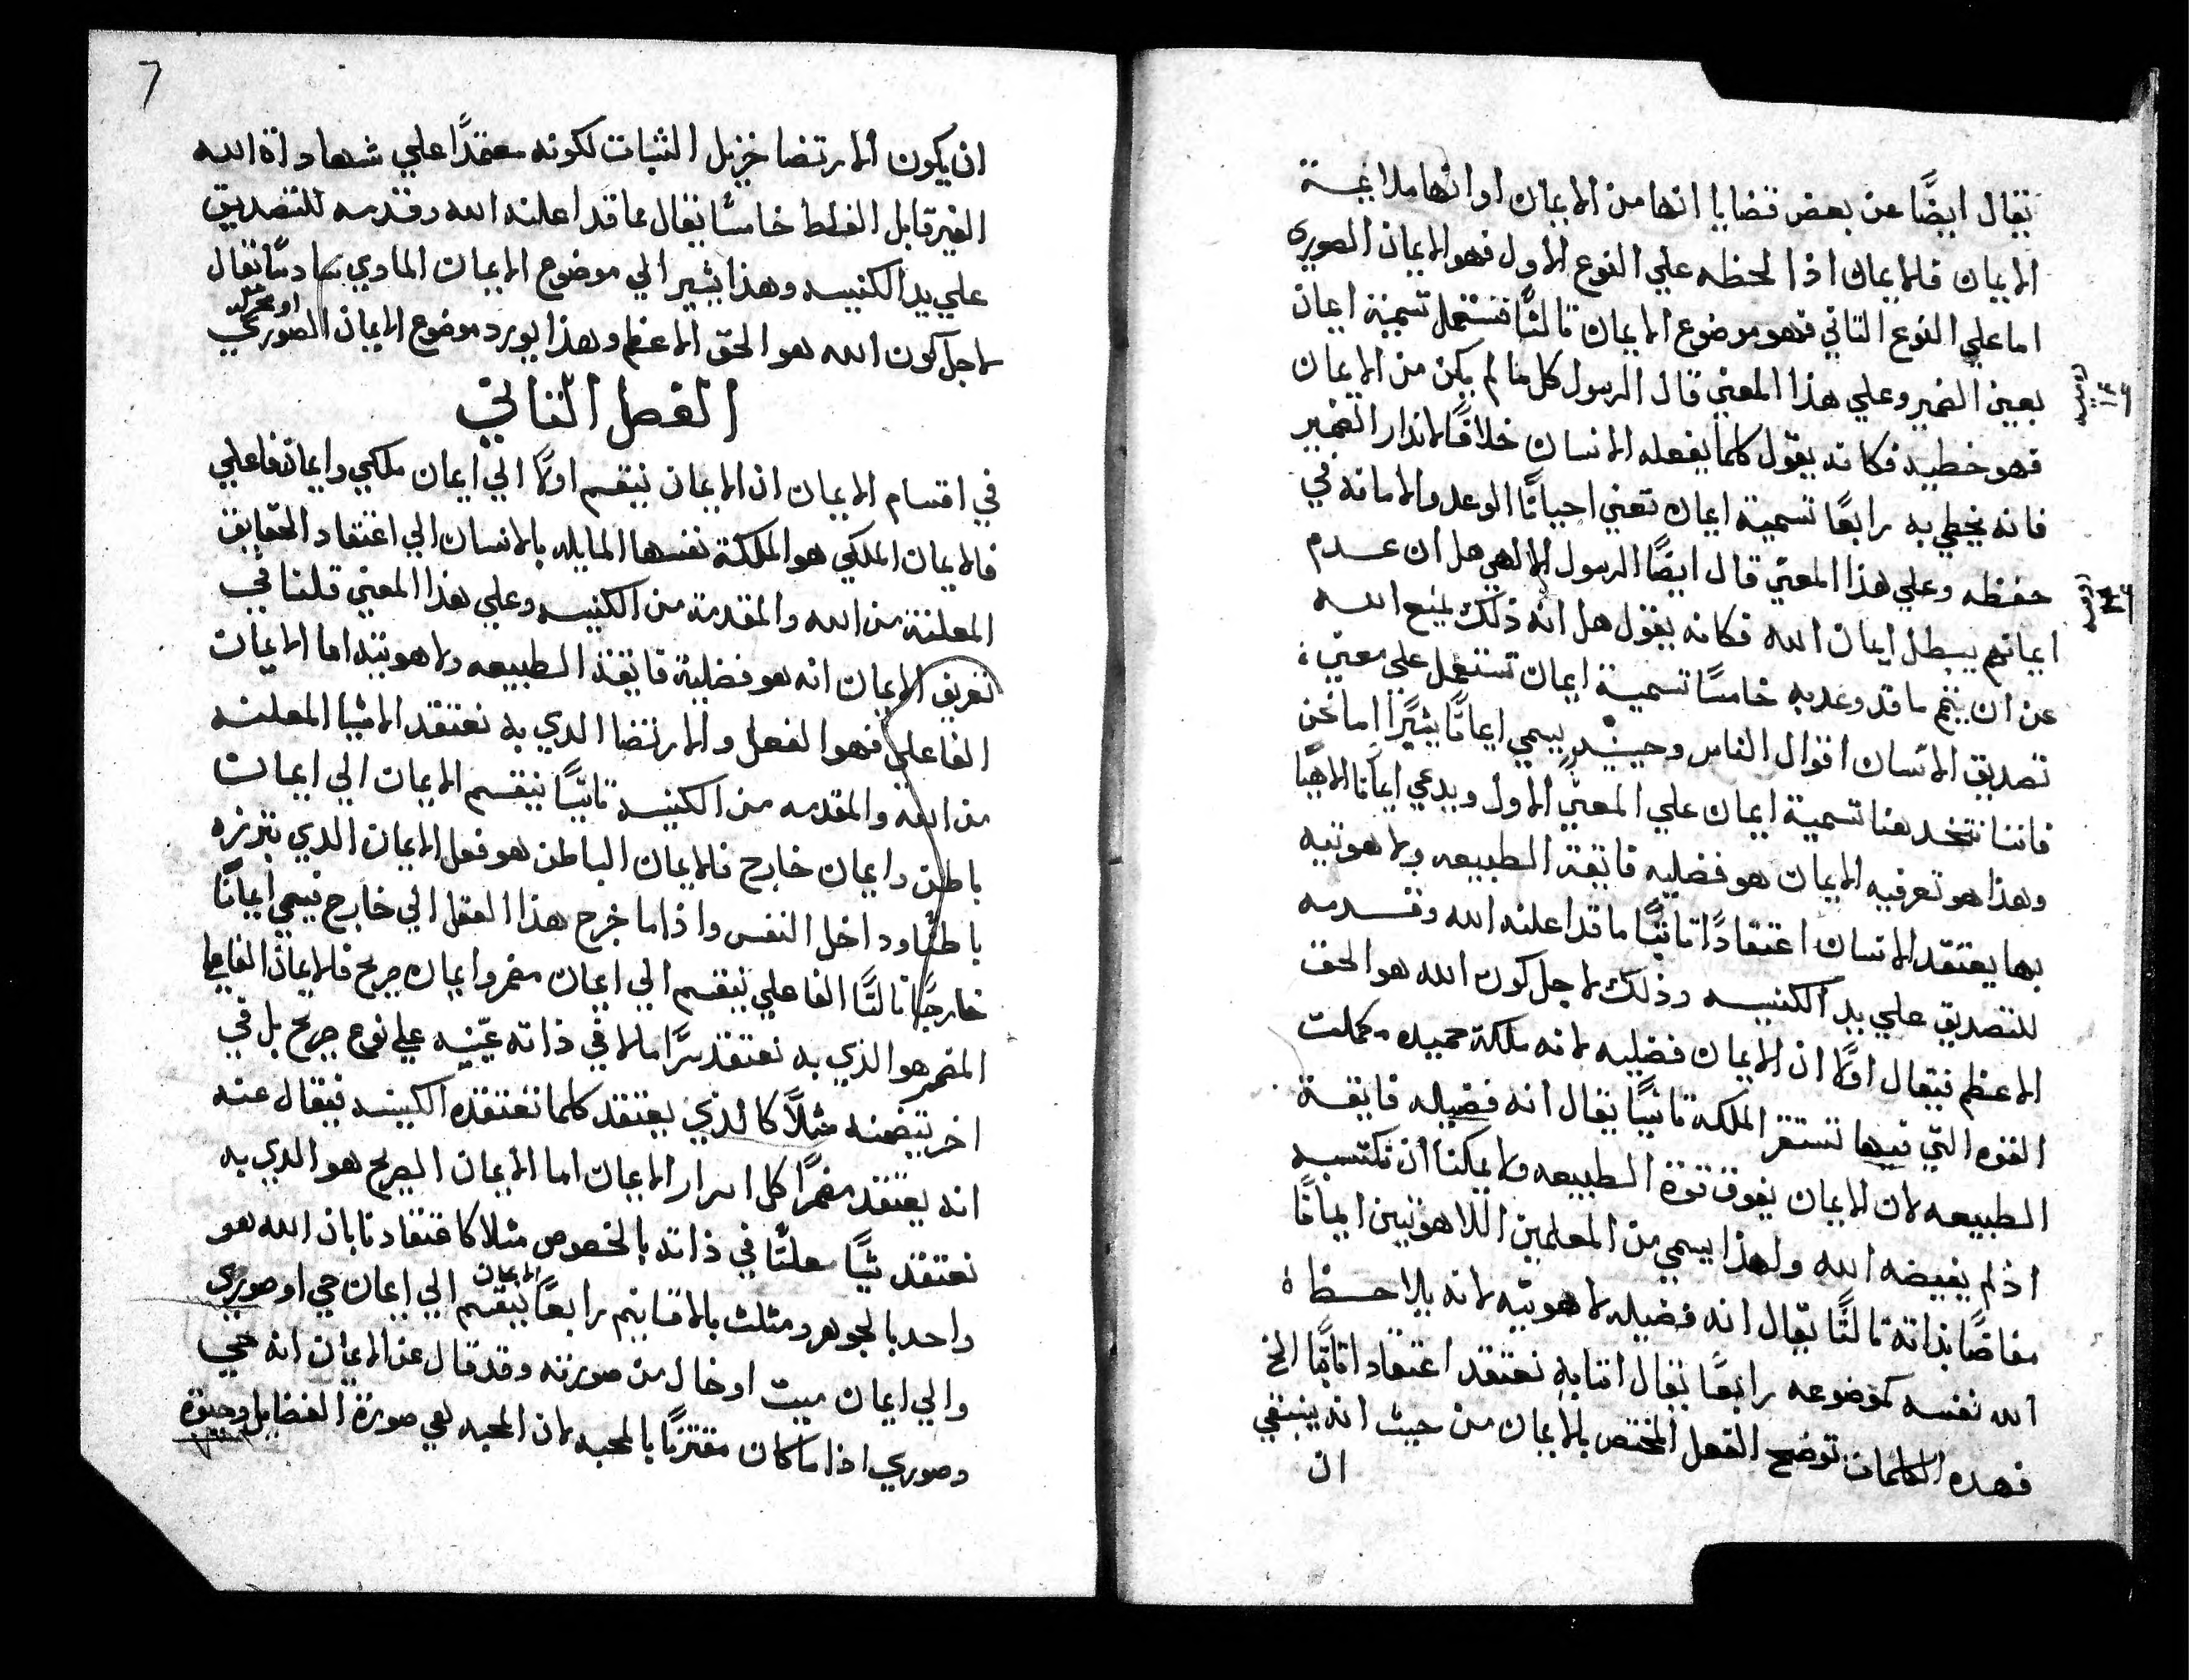 يقال ايضًا عن بعض قضايا انها من الايمان او انها ملايمة
الايمان فالايمان اذا لحظه علي النوع الاول فهو الايمان الصوري
اما علي النوع الثاني فهو موضوع الايمان ثالثًا فتستعمل تسمية ايمان
بعين الضمير وعلي هذا المعني قال الرسول كل ما لم يكن من الايمان
روميه
١٤
فهو خطيه فكانه يقول كلما يفعله الانسان خلافًا لانذار الضمير
فانه يخطي به رابعًا تسمية ايمان تعني احيانًا الوعد والامانه في
حفظه وعلي هذا المعني قال ايضًا الرسول الالهي هل ان عدم
روميه
ايمانهم يبطل ايمان الله فكانه يقول هل انه ذلك يمنع الله
عن ان يتم ما قد وعد به خامسًا تسمية ايمان تستعمل علي معني
تصديق الانسان اقوال الناس وحينيذٍ يسمي ايمانًا بشريًا اما نحن
فاننا نتخد هنا تسمية ايمان علي المعني الاول ويدعي ايمانًا الاهيًا
وهذا هو تعرفيه الايمان هو فضليه فايقة الطبيعه ولاهوتيه
بها يعتقد الانسان اعتقادًا ثابتًا ما قد اعلنه الله وقدمه
للتصديق علي يد الكنيسه وذلك لاجل كون الله هو الحق
الاعظم فيقال اولًا ان الايمان فضليه لانه ملكة حميده مكملت
القوه التي فيها تستقر الملكة ثانيًا يقال انه فضيله فايقة
الطبيعه لان الايمان يفوق قوة الطبيعه ولا يمكننا ان نكتسبه
اذ لم يفيضه الله ولهذا يسمي من المعلمين اللاهوتيين ايمانًا
مفاضًا بذاته ثالثًا يقال انه فضيله لاهوتيه لانه يلاحظ
الله نفسه كموضوعه رابعًا يقال اننا به نعتقد اعتقادا ثابتًا الخ
فهده الكلمات توضح الفعل المختص بالايمان من حيث انه ينبغي
ان
7
ان يكون الارتضا جزيل الثبات لكونه معتمدًا علي شهادة الله
الغير قابل الغلط خامسًا يقال بما قد اعلنه الله وقدمه للتصديق
علي يد الكنيسه وهذا يشير الي موضوع الايمان المادي سادسًا يقال
لاجل كون الله هو الحق الاعظم وهذا يورد موضوع الايمان الصوري
الفصل الثاني
في اقسام الايمان ان الايمان ينقسم اولًا الي ايمان ملكي وايمان فاعلي
فالايمان الملكي هو الملكة نفسها المايله بالانسان الي اعتقاد الحقايق
المعلنة من الله والمقدمة من الكنيسه وعلي هذا المعني قلنا في
تعريف الايمان انه هو فضلية فايقة الطبيعه ولاهوتيه اما الايمان
الفاعلي فهو الفعل والارتضا الدي به نعتقد الاشيا المعلنه
من الله والمقدمه من الكنيسه ثانيًا ينقسم الايمان الي ايمان
باطن وايمان خارج فالايمان الباطن هو فعل الايمان الدي نبرزه
باطنًا وداخل النفس واذا ما خرج هذا الفعل الي خارج فيسمي ايمانًا
خارجيًا ثالثًا الفاعلي ينقسم الي ايمان مضمر وايمان صريح فالايمان الفاعلي
المضمر هو الذي به نعتقد سرًا ما لا في ذاته عينه علي نوع صريح بل في
اخر يتضمنه مثلًا كالذي يعتقد كلما تعتقده الكنيسه فيقال عنه
انه يعتقد مضمرًا كل اسرار الايمان اما الايمان الصريح هو الدي به
نعتقد شيًا معلنًا في ذاته بالخصوص مثلا كاعتقادنا بان الله هو
واحد بالجوهر ومثلث بالاقانيم رابعًا ينقسم الايمان الي ايمان حي او صوري
والي ايمان ميت او خال من صورته وقد قال عن الايمان انه حي
وصوري اذا ما كان مقترنًا بالمحبه لان المحبه هي صورة الفضايل وحيوة